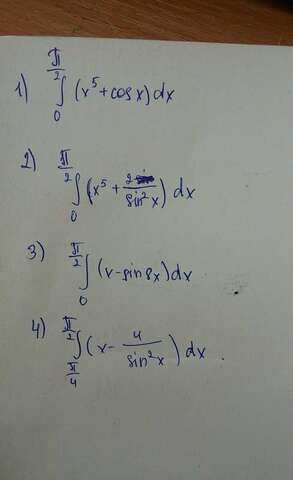 1) ∫₀^(π/2) (x⁵ + cos x) dx
2) ∫₀^(π/2) (x⁵ + 2/sin²x) dx
3) ∫₀^(π/2) (x - sin 8x) dx
4) ∫_(π/4)^(π/2) (x - 4/sin²x) dx .